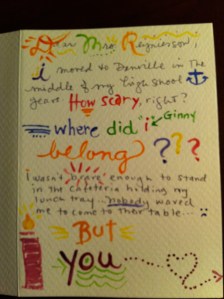 Dear Mrs. Reynierson,
i moved to Danville in the
middle of my high school
years. How scary, right?
Ginny
where did i
belong ???
I wasn't brave enough to stand
in the cafeteria holding my
lunch tray... nobody waved
me to come to their table...
But
You